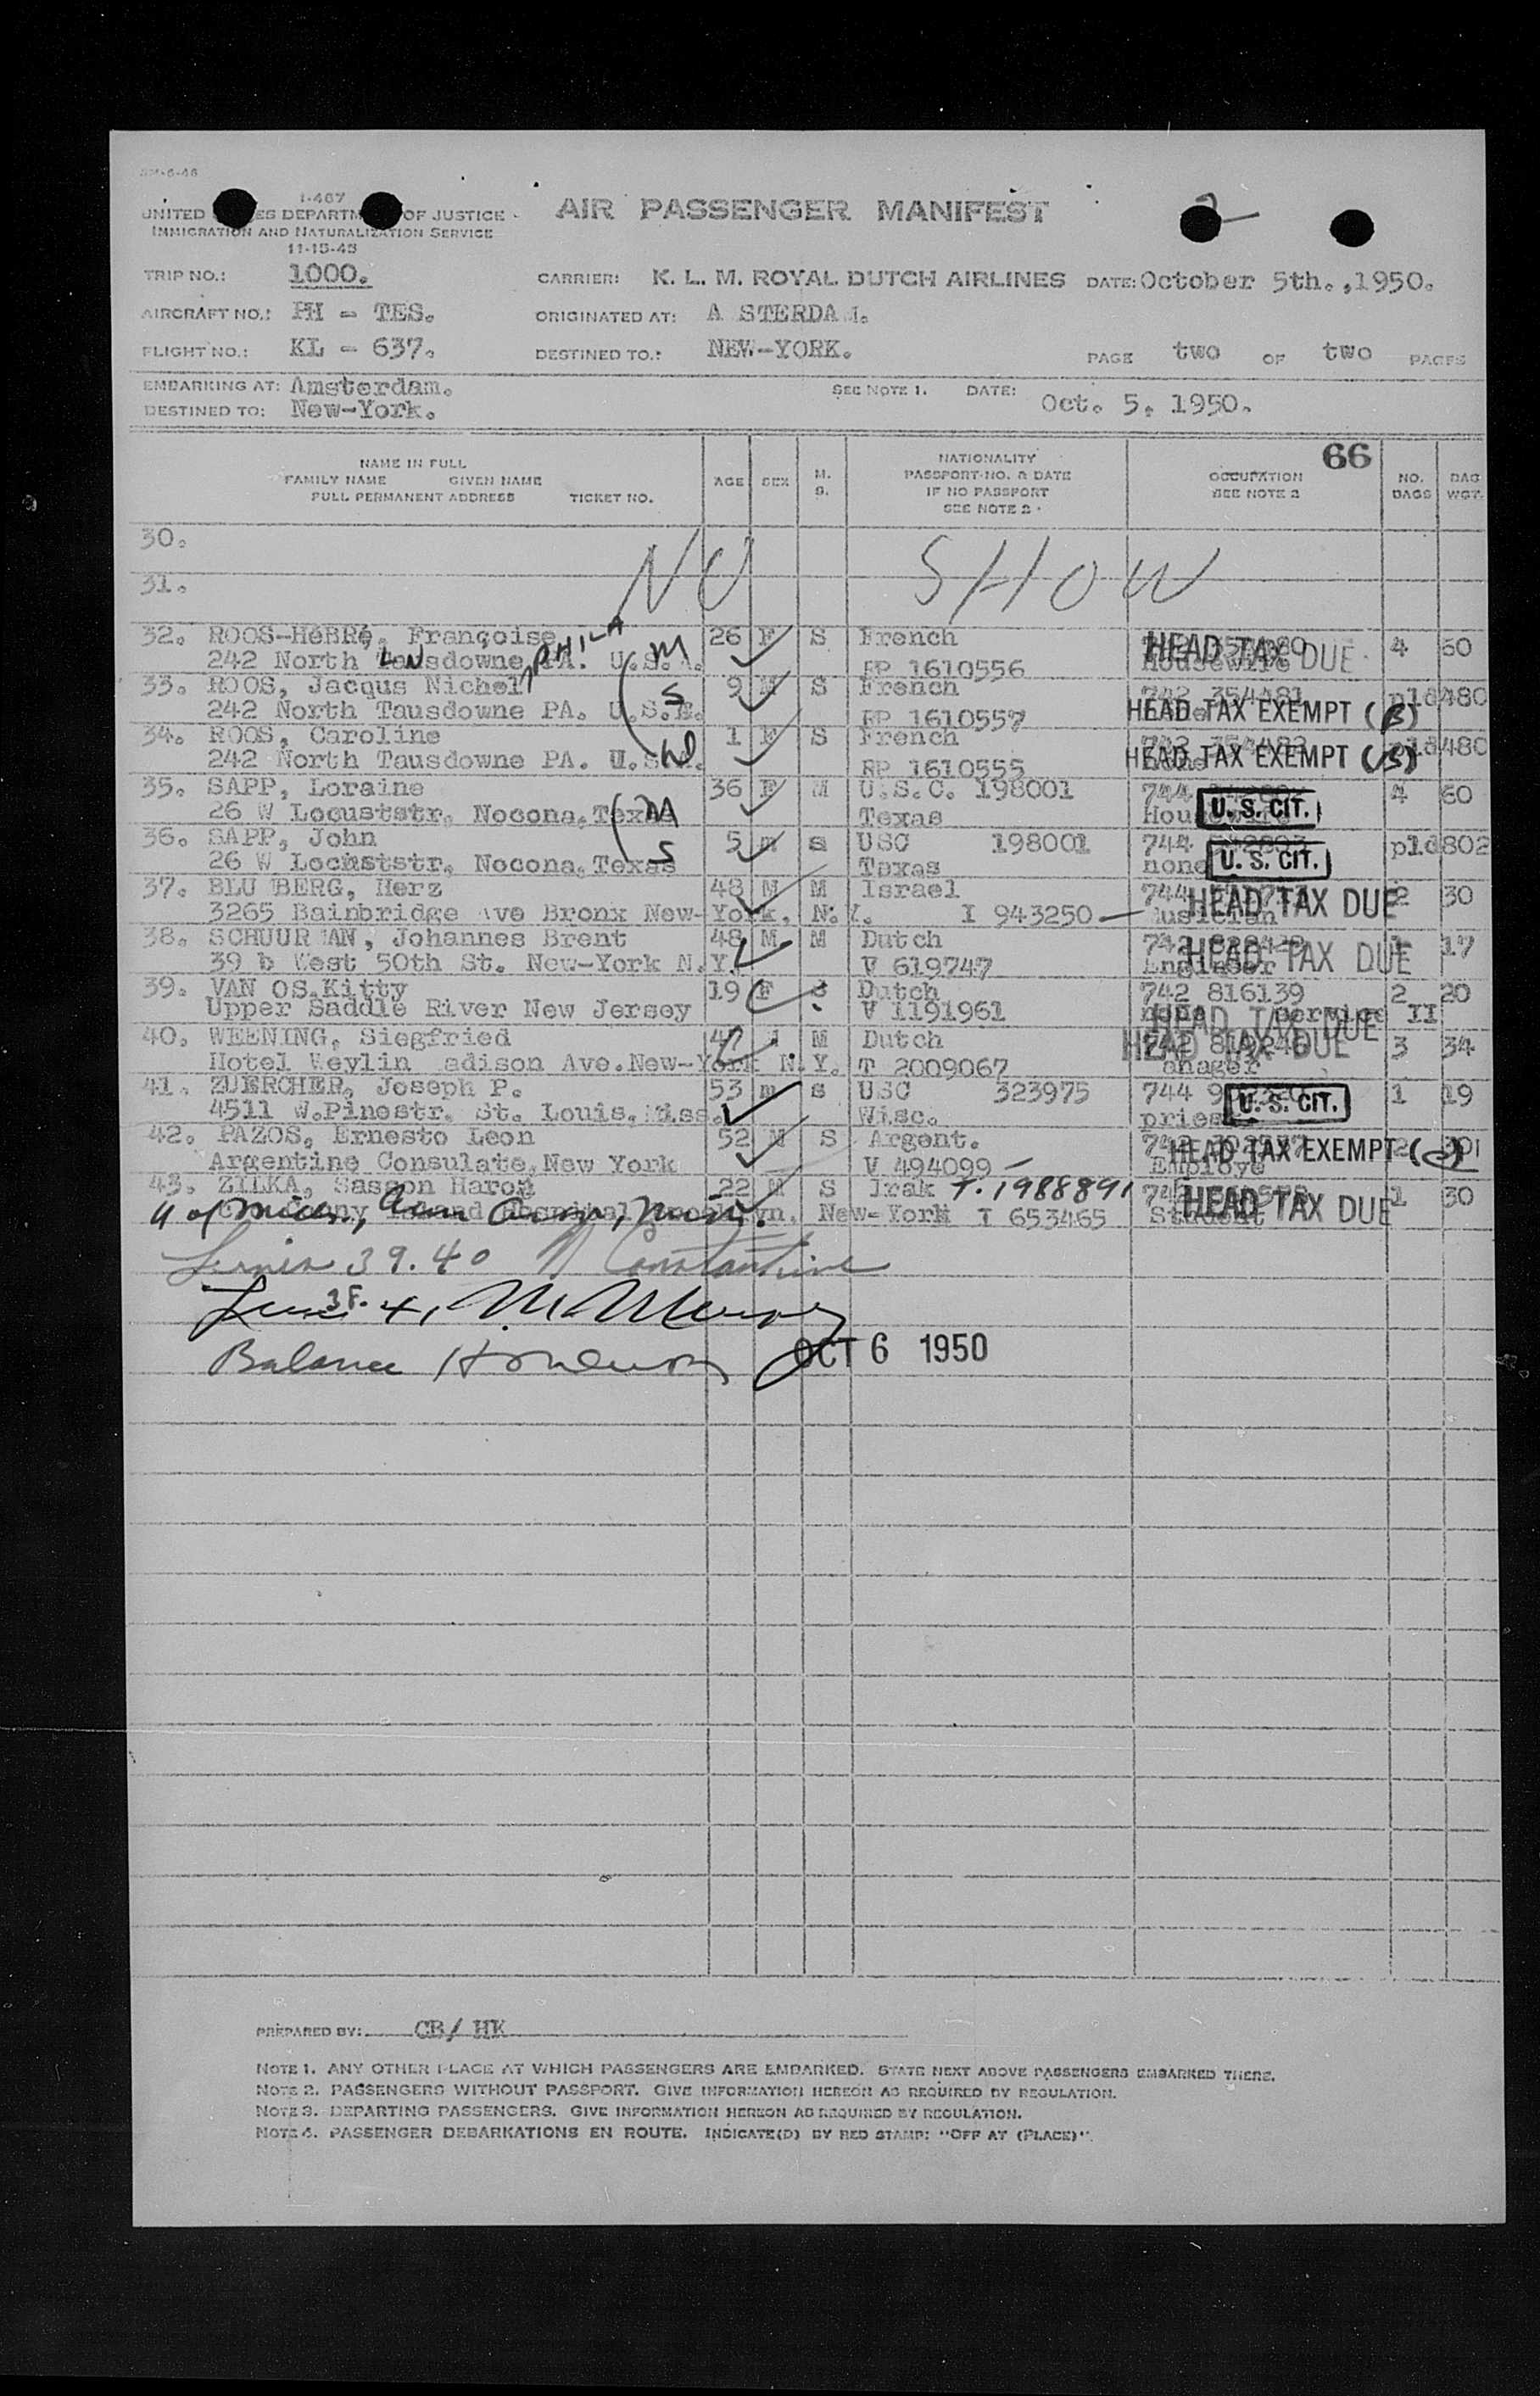 I-467
UNITED ES DEPARTM OF JUSTICE
IMMIGRATION AND NATURALIZATION SERVICE
11-15-45
AIR PASSENGER MANIFEST
TRIP NO.: 1000. CARRIER: K. L. M. ROYAL DUTCH AIRLINES DATE: October 5th.,1950.
AIRCRAFT NO.: PH - TES. ORIGINATED AT: A STERDA .
FLIGHT NO.: KL - 637. DESTINED TO.: NEW-YORK. PAGE two OF two PAGES
EMBARKING AT: Amsterdam. SEE NOTE 1. DATE: Oct. 5. 1950.
DESTINED TO: New-York.
66
NAME IN FULL
FAMILY NAME GIVEN NAME
FULL PERMANENT ADDRESS TICKET NO.
AGE SEX M. S.
NATIONALITY
PASSPORT NO. & DATE
IF NO PASSPORT
SEE NOTE 2
OCCUPATION
SEE NOTE 2
NO. BAGS
BAG WGT.
30.
NO SHOW
31.
32. ROOS-HéBRé, Françoise 26 F S French HEAD TAX DUE 4 60
242 North Tausdowne, PA. U.S.A. PHILA M RP 1610556
33. ROOS, Jacqus Michel 9 M S French 742 354481
242 North Tausdowne PA. U.S.A. S RP 1610557 HEAD TAX EXEMPT (B)
34. ROOS, Caroline 1 F S French
242 North Tausdowne PA. U.S. RP 1610555 HEAD TAX EXEMPT (B)
35. SAPP, Loraine 36 F M U.S.C. 198001 744 U. S. CIT. 4 60
26 W Locuststr. Nocona, Texas M Texas
36. SAPP, John 5 m s USC 198001 744
26 W Locuststr. Nocona, Texas S Texas none U. S. CIT.
37. BLU BERG, Herz 48 M M Israel 744 HEAD TAX DUE 2 30
3265 Bainbridge Ave Bronx New-York, N.Y. I 943250
38. SCHUUR AN, Johannes Brent 48 M M Dutch 742 HEAD TAX DUE 1 17
39 b West 50th St. New-York N.Y. V 619747 Engineer
39. VAN OS.Kitty 19 F S Dutch 742 816139 2 20
Upper Saddle River New Jersey V 1191961 HEAD TAX DUE II
40. WEENING, Siegfried M Dutch HEAD TAX DUE 3 34
Hotel Weylin adison Ave.New-York N.Y. T 2009067 anager
41. ZUERCHER, Joseph P. 53 m s USC 323975 744 U. S. CIT. 1 19
4511 W.Pinestr. St. Louis, Miss. Wisc. priest
42. PAZOS, Ernesto Leon 52 M S Argent. 742 HEAD TAX EXEMPT 2
Argentine Consulate, New York V 494099 Employe
43. ZILKA, Sasson Haron 22 M S Irak T. 1988891 HEAD TAX DUE 1 30
New-York I 653465 Student
39. 40 Constantine
38. 41
Balance
OCT 6 1950
PREPARED BY: CB/ HK
NOTE 1. ANY OTHER PLACE AT WHICH PASSENGERS ARE EMBARKED. STATE NEXT ABOVE PASSENGERS EMBARKED THERE.
NOTE 2. PASSENGERS WITHOUT PASSPORT. GIVE INFORMATION HEREON AS REQUIRED BY REGULATION.
NOTE 3. DEPARTING PASSENGERS. GIVE INFORMATION HEREON AS REQUIRED BY REGULATION.
NOTE 4. PASSENGER DEBARKATIONS EN ROUTE. INDICATE(D) BY RED STAMP: "OFF AT (PLACE)".